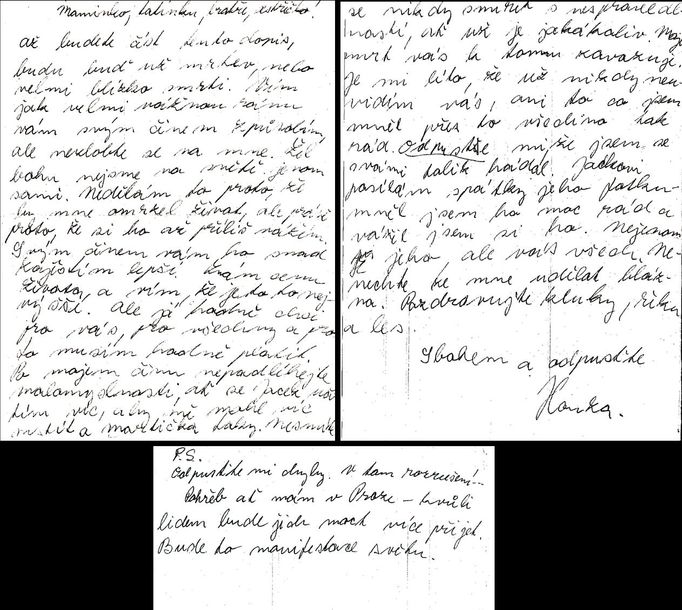 Maminko, tatínku, bratře, sestřičko!
až budete číst tento dopis,
budu buď už mrtev, nebo
velmi blízko smrti. Vím
jak velmi vážnou ránu
vám svým činem způsobím,
ale nezlobte se na mne. Žel
bohu nejsme na světě jenom
sami. Nedělám to proto, že
by mne omrzel život, ale právě
proto, že si ho až příliš vážím.
Svým činem vám ho snad
zajistím lepší. Znám cenu
života, a vím, že je to to nej-
vyšší. Ale já hodně chci
pro vás, pro všechny a pro
to musím hodně platit.
Po mojem činu nepodléhejte
malomyslnosti, ať se Jacek učí
tím víc, aby mě mohl víc
a Martička taky. Nesmíte
se nikdy smířit s nespravedl
ností, ať už je jakákoliv. Moje
smrt vás k tomu zavazuje.
Je mi líto, že už nikdy neu
vidím vás, ani to co jsem
měl přes to všechno tak
rád. Odpusťte mi, že jsem se
s vámi tolik hádal.
posílám zpátky jeho
měl jsem ho moc rád a
vážil jsem si ho. Nejenom
jeho ale vás všech. Ne-
nechte ze mne udělat bláz-
na. Pozdravujte kluky, řeku
a les.
Sbohem a odpusťte
P.S.
Odpusťte mi chyby. V tom rozrušení...
Pohřeb ať mám v Praze – kvůli
lidem bude jich moct více přijet.
Bude to manifestace